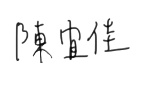 陳宜佳